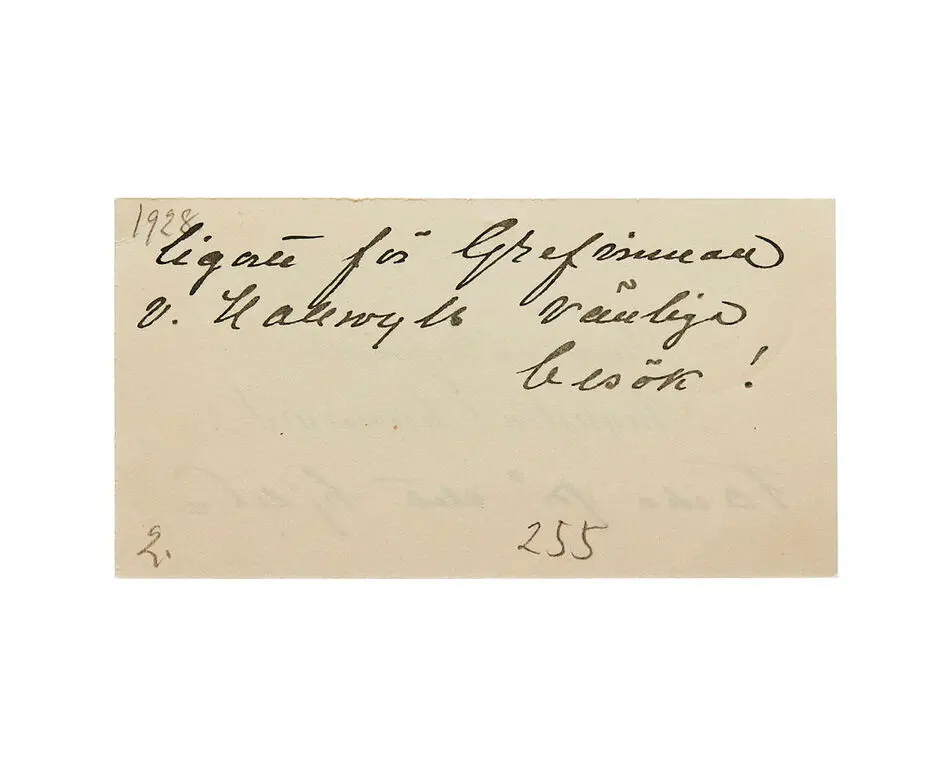 1928
ligaste för Grefvinnan
v. Hallwyls vänliga
besök!
2.
255